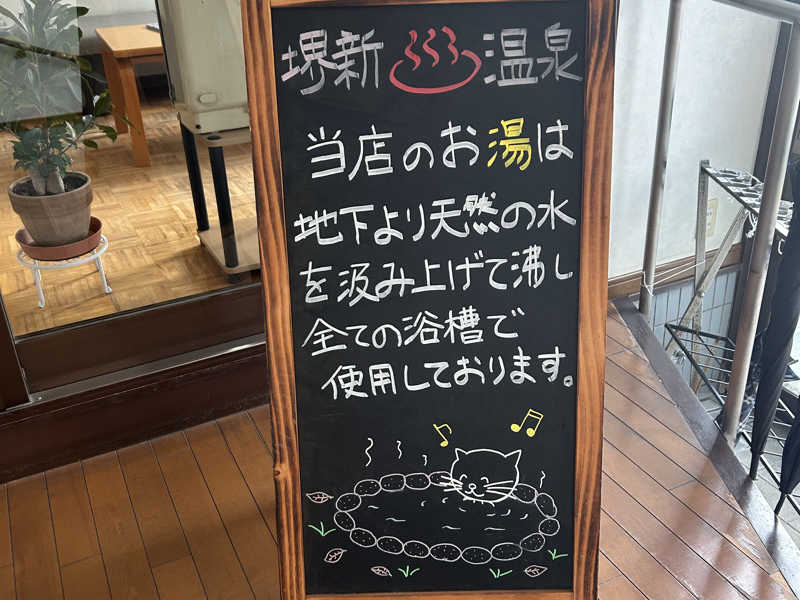 堺新♨温泉
当店のお湯は
地下より天然の水
を汲み上げて沸し
全ての浴槽で
使用しております。